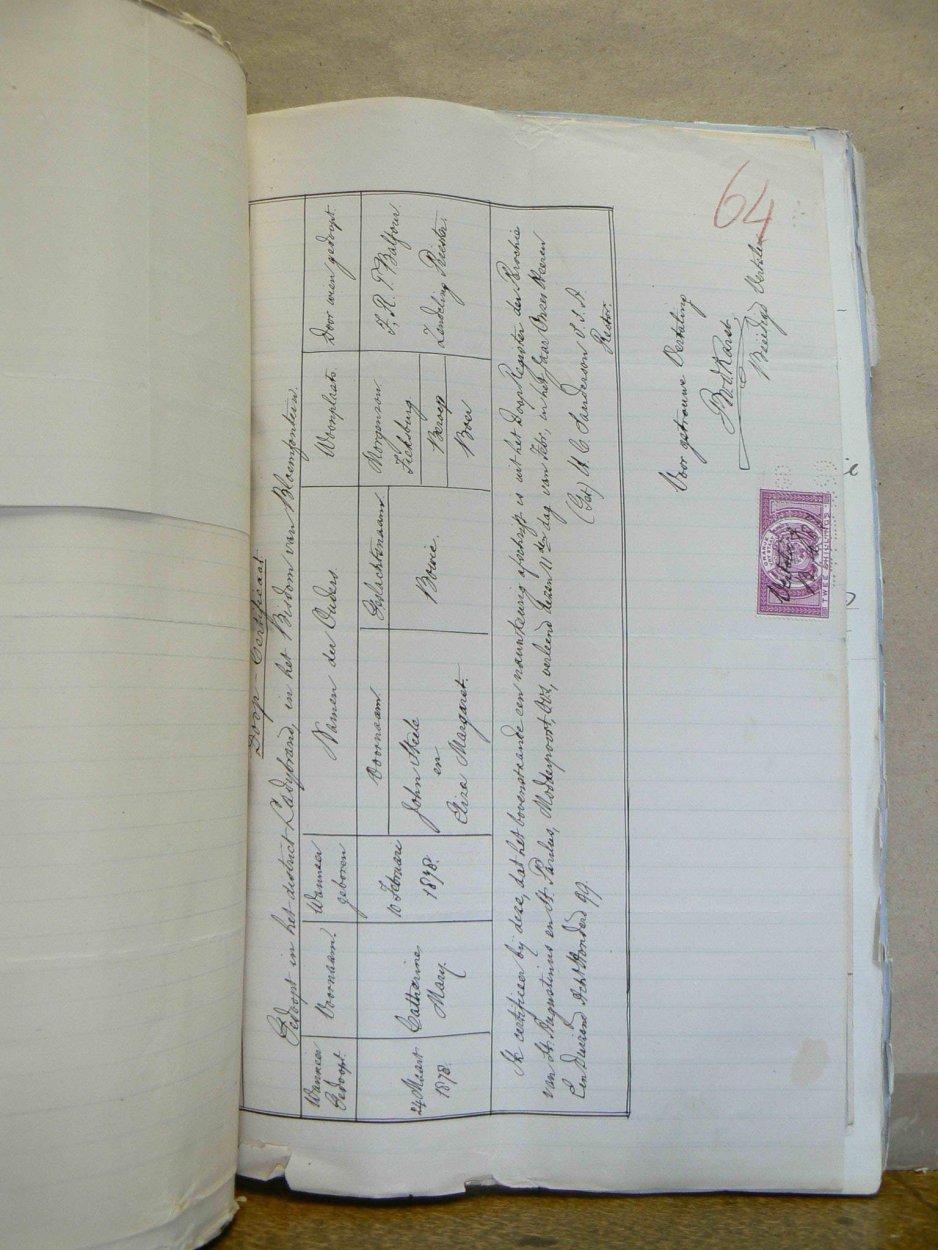 Doop-Certificaat.
Gedoopt in het district Ladybrand, in het Bisdom van Bloemfontein.
Wanneer Gedoopt.
Voornaam.
Wanneer geboren
Namen der Ouders.
Woonplaats.
Door wien gedoopt
Voornaam
Geslachtsnaam
24 Maart
1878.
Catherine
Mary.
10 Februari
1878.
John Steele
en
Eliza Margaret.
Bowie.
Morgenzon
Ficksburg
Beroep
Boer
F. R. T. Balfour
Zendeling Priester.
Ik certificeer bij deze, dat het bovenstaande een nauwkeurig afschrift is uit het Doop Register der Parochie
van St. Augustinus en St. Paulus, Modderpoort, OVS, verleend dezen 11den dag van Febr, in het Jaar Onzes Heeren
Een Duizend Acht Honderd 99
(Get) W. C. Sanderson S.S.A.
Rector.
Voor getrouwe Vertaling
Beëedigd Vertaler
64
Vertaling
TWEE SHILLINGS